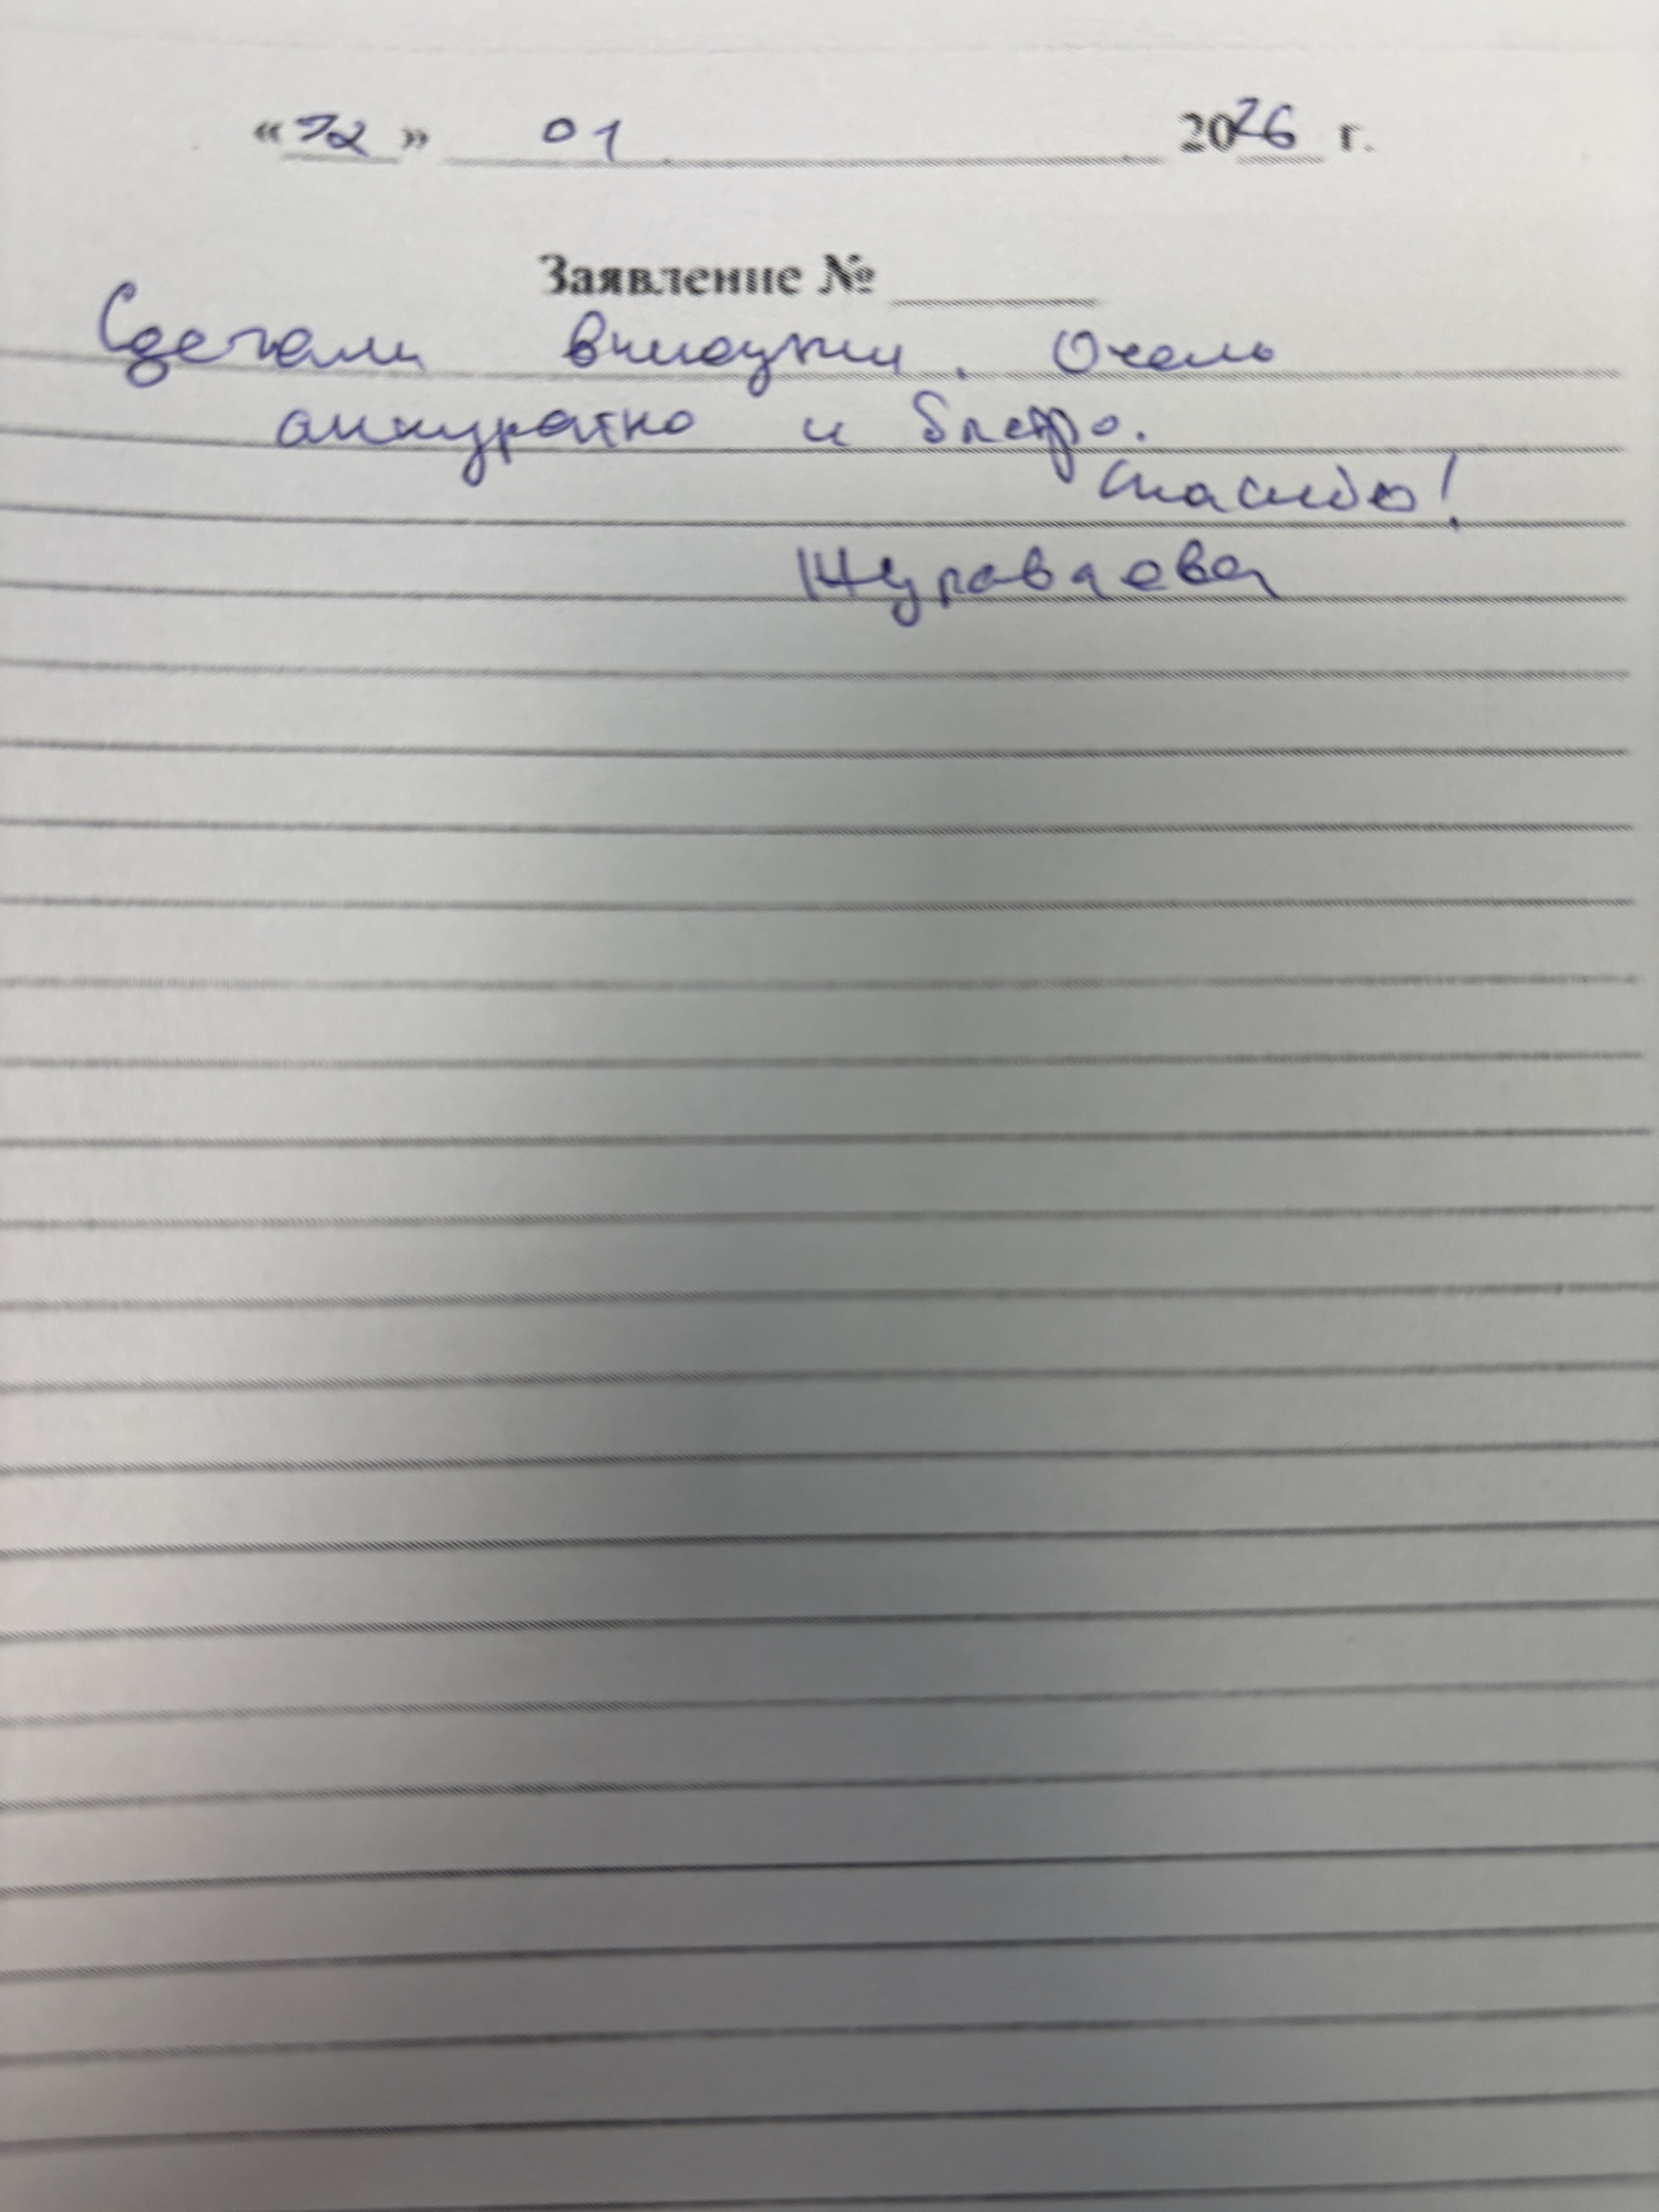 « » 01 2026 г.
Заявление №
Сделали Очень
аккуратно и быстро.
Спасибо!
Журавлева